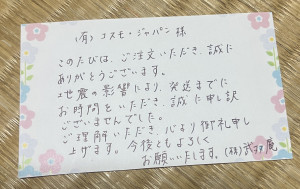 (有)コスモ・ジャパン 様
このたびは、ご注文いただき、誠に
ありがとうございます。
地震の影響により、発送までに
お時間をいただき、誠に申し訳
ございませんでした。
ご理解いただき、心より御礼申し
上げます。今後ともよろしく
お願いいたします。(株)武